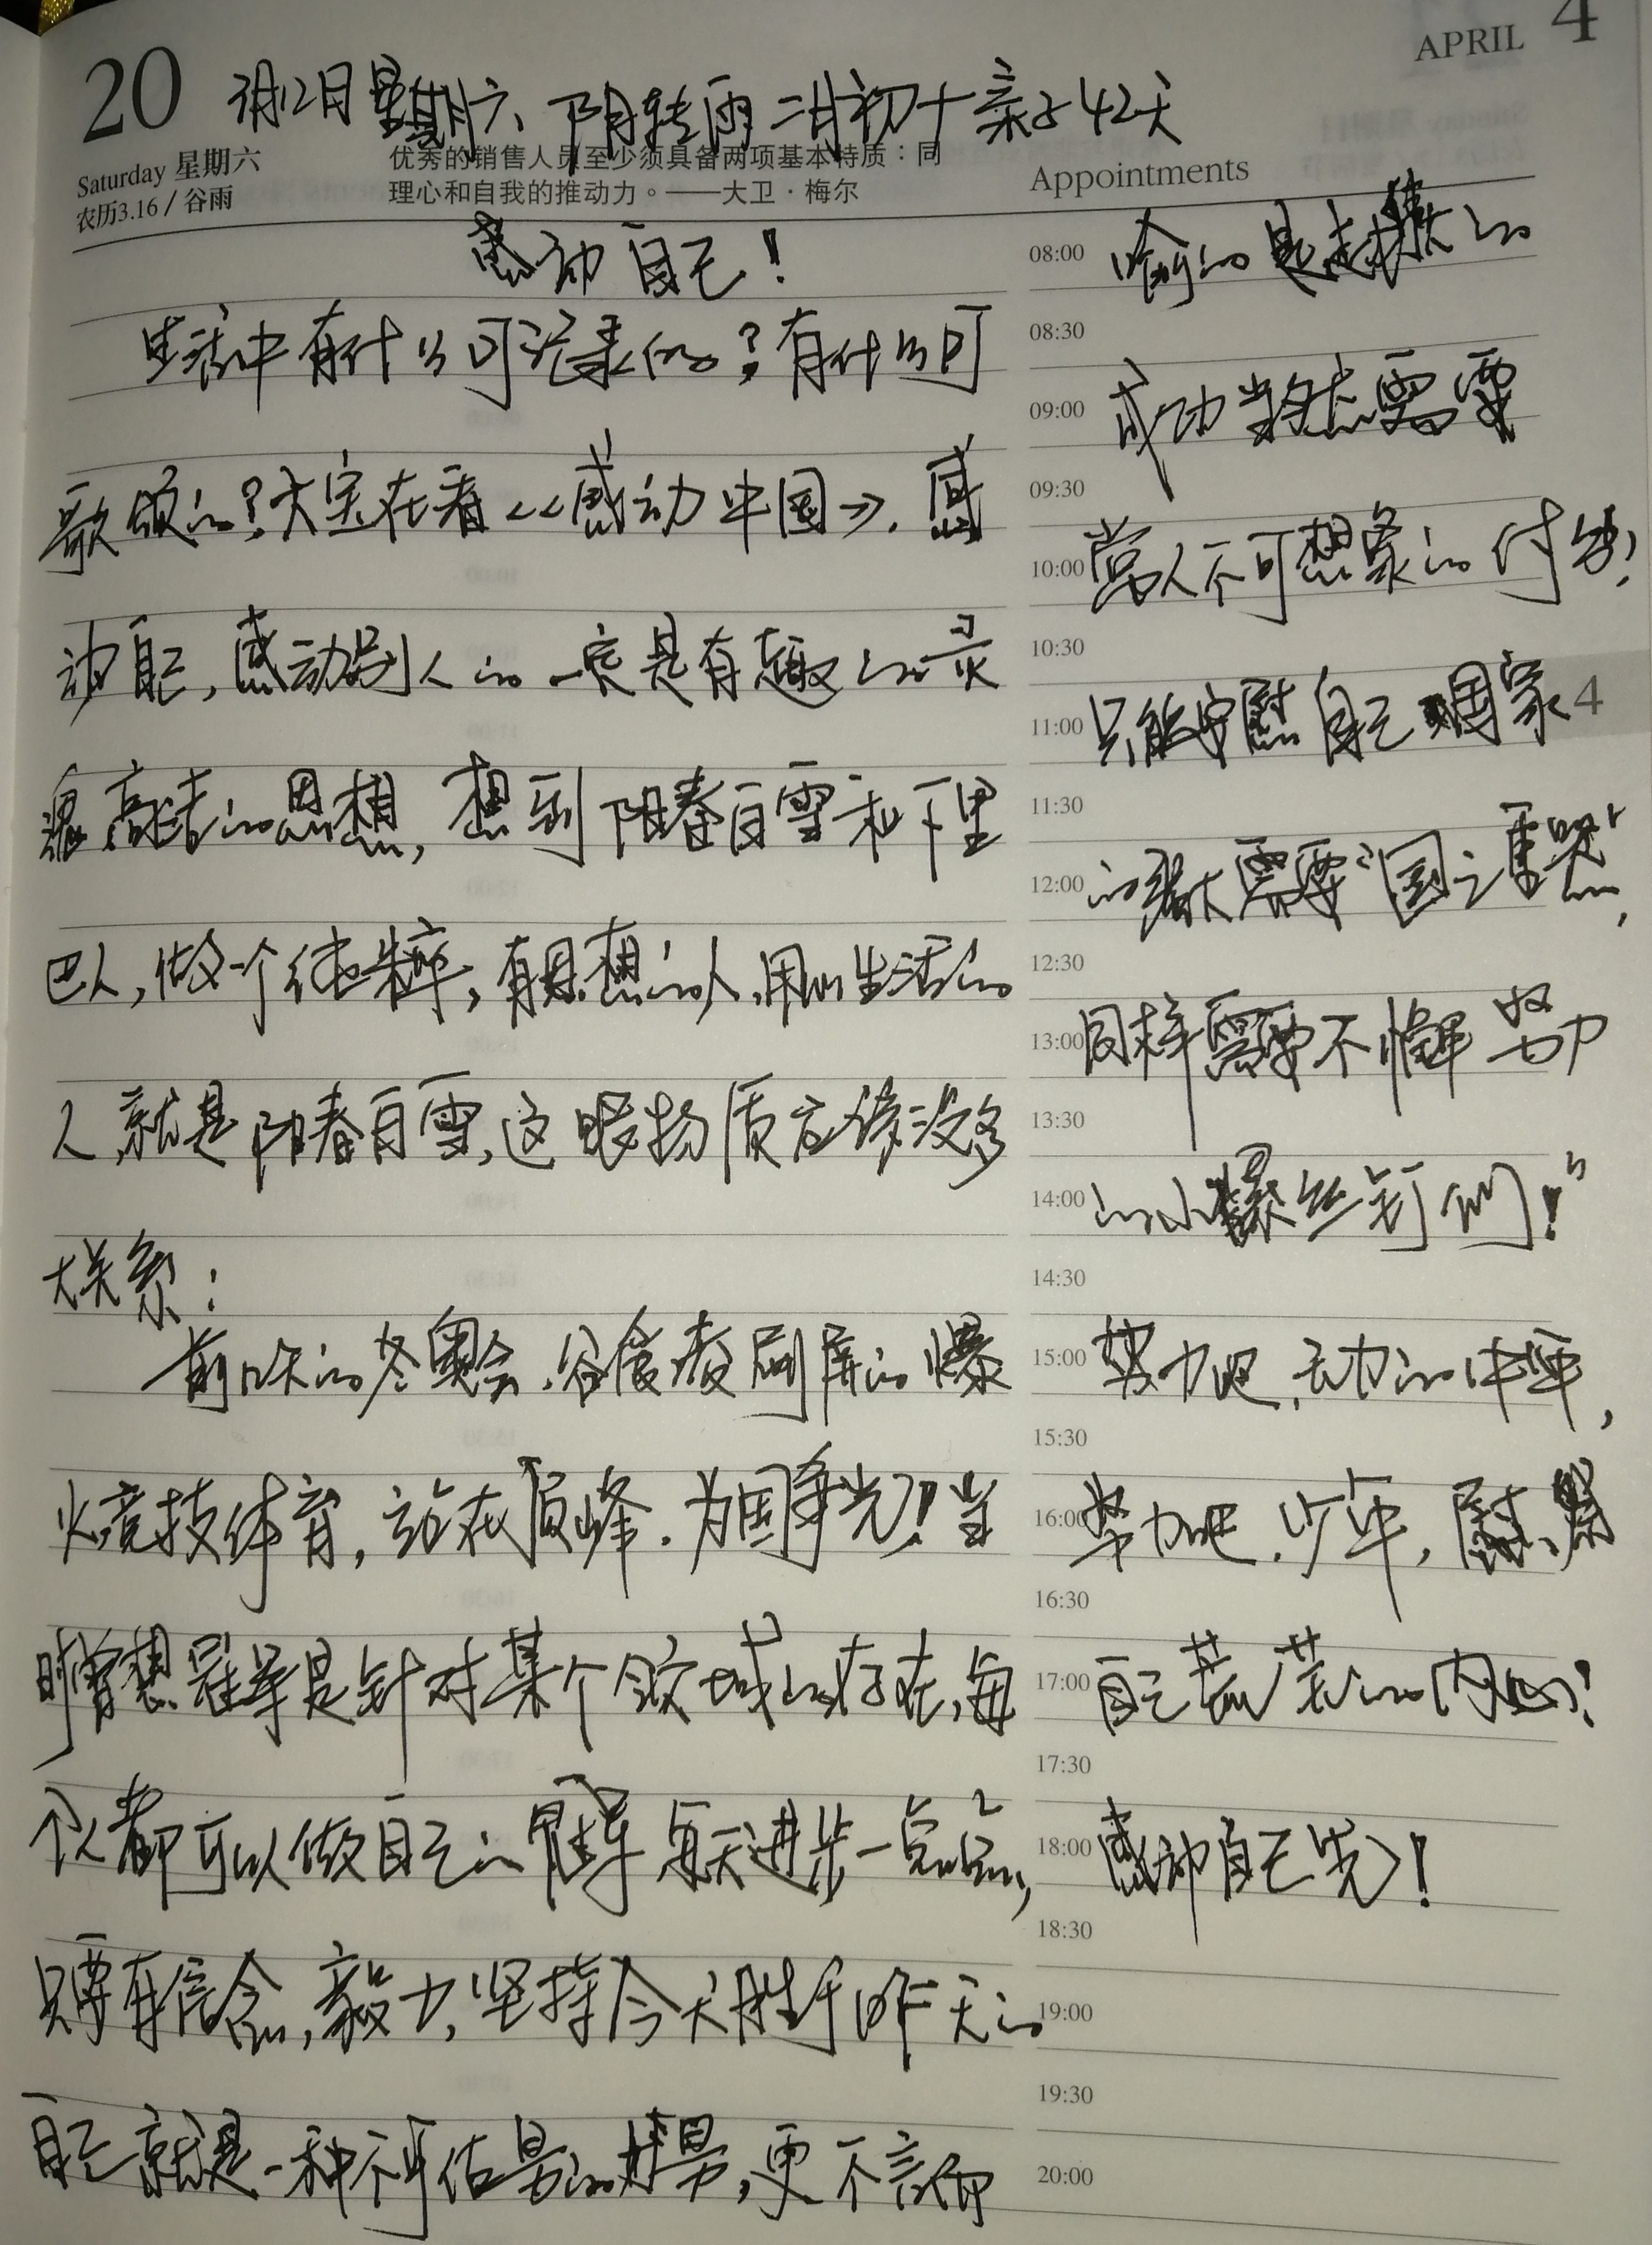 20
APRIL 4
3月12日 星期六 阴转雨 二月初十 亲子42天
Saturday 星期六
农历3.16 / 谷雨
优秀的销售人员至少须具备两项基本特质：同
理心和自我的推动力。——大卫·梅尔
Appointments
感动自己！
生活中有什么可记录的？有什么可
歌颂的？大宝在看《感动中国》，感
动自己，感动别人的一定是有趣的灵
魂，高洁的思想，想到阳春白雪和下里
巴人，做个纯粹，有思想的人，用心生活的
人，就是阳春白雪，这跟物质应该没多
大关系：
前昨的冬奥会，谷爱凌刷屏的爆
火竞技体育，站在顶峰，为国争光！当
时曾想冠军是针对某个领域的存在，每
个人都可以做自己的冠军 每天进步一点点，
只要有信念，毅力，坚持今天胜于昨天的
自己就是一种不可估量的力量，更不言而
08:00
喻的是
08:30
09:00
成功当然需要
09:30
10:00
常人不可想象的付出！
10:30
11:00
只能安慰自己 国家
4
11:30
12:00
的强大需要"国之重器"，
12:30
13:00
同样需要不懈努力
13:30
14:00
的小螺丝钉们！"
14:30
15:00
努力吧，无力的中年，
15:30
16:00
努力吧，少年，慰藉
16:30
17:00
自己荒芜的内心！
17:30
18:00
感动自己先！
18:30
19:00
19:30
20:00